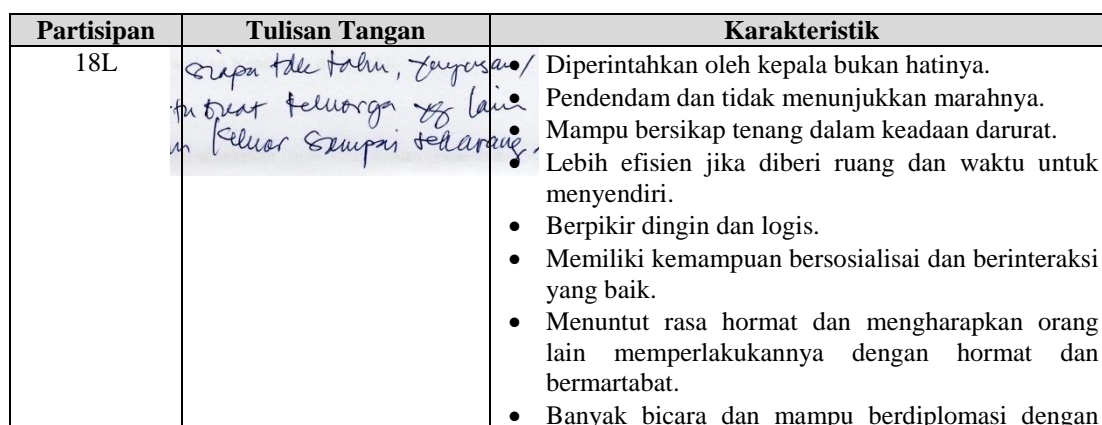 Partisipan Tulisan Tangan Karakteristik
18L
siapa tdk tahu,
buat keluarga yg lain
keluar sampai sekarang,
• Diperintahkan oleh kepala bukan hatinya.
• Pendendam dan tidak menunjukkan marahnya.
• Mampu bersikap tenang dalam keadaan darurat.
• Lebih efisien jika diberi ruang dan waktu untuk
menyendiri.
• Berpikir dingin dan logis.
• Memiliki kemampuan bersosialisai dan berinteraksi
yang baik.
• Menuntut rasa hormat dan mengharapkan orang
lain memperlakukannya dengan hormat dan
bermartabat.
• Banyak bicara dan mampu berdiplomasi dengan